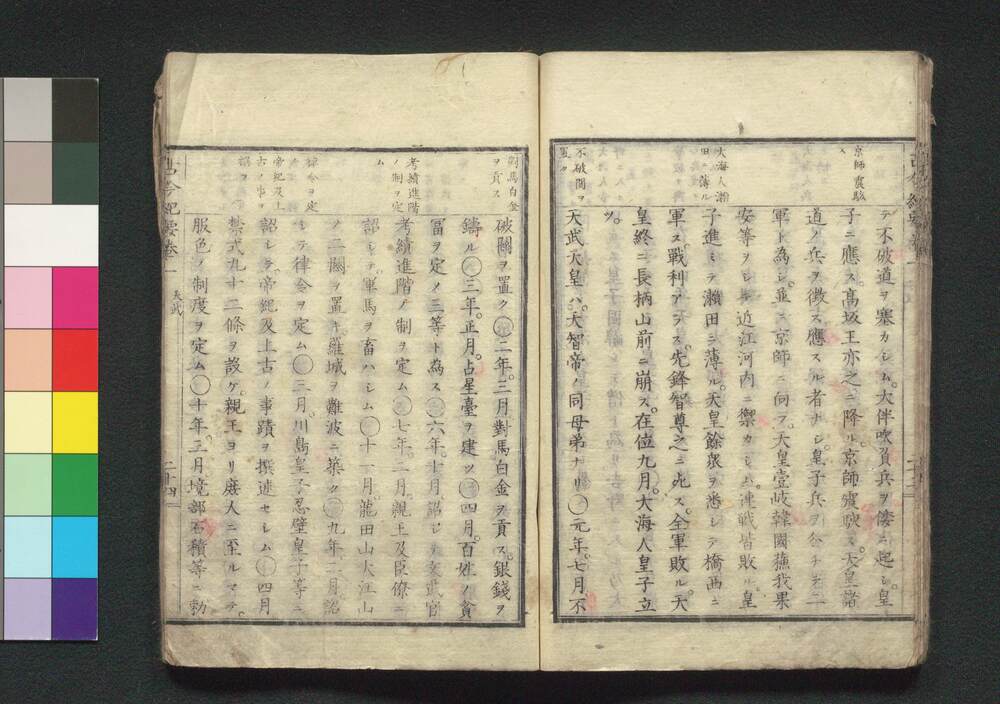 京師震駭
ス
大海人瀬
田ニ薄ル
不破関ヲ
置ク
テ不破道ヲ塞カシム。大伴吹負兵ヲ倭ニ起シ。皇
子ニ應ス。高坂王亦之ニ降ル。京師震駭ス。天皇諸
道ノ兵ヲ徴ス應スル者ナシ。皇子兵ヲ分チテ二
軍ト為シ。並ニ京師ニ向フ。天皇壹岐韓國蘓我果
安等ヲシテ近江河內ニ禦カシム。連戰皆敗ル。皇
子進ミテ瀨田ニ薄ル。天皇餘衆ヲ悉シテ橋西ニ
軍ス。戰利アラス。先鋒智尊之ニ死ス。全軍敗ル。天
皇終ニ長柄山前ニ崩ス。在位九月。大海人皇子立
ツ。
天武天皇ハ。天智帝ノ同母弟ナリ○元年。七月不
古今紀要卷一
對馬白金
ヲ貢ス
考績進階
ノ制ヲ定
ム
律令ヲ定ム
帝紀及上
古ノ事ヲ
破關ヲ置ク○二年。三月對馬白金ヲ貢ス。銀錢ヲ
鑄ル○三年。正月。占星臺ヲ建ツ○四月。百姓ノ貧
冨ヲ定メ三等ト為ス○六年。十月詔シテ文武官
考績進階ノ制ヲ定ム○七年。二月。親王及臣僚ニ
詔シテ。軍馬ヲ畜ハシム○十一月。龍田山大江山
ノ二關ヲ置キ。羅城ヲ難波ニ築ク○九年。二月詔
シテ律令ヲ定ム○三月。川島皇子忍壁皇子等ニ
詔シテ。帝紀及上古ノ事蹟ヲ撰述セシム○四月
禁式九十二條ヲ設ケ。親王ヨリ庶人ニ至ルマテ。
服色ノ制度ヲ定ム○十年。三月境部石積等ニ勅
古今紀要卷一
天武
二十四